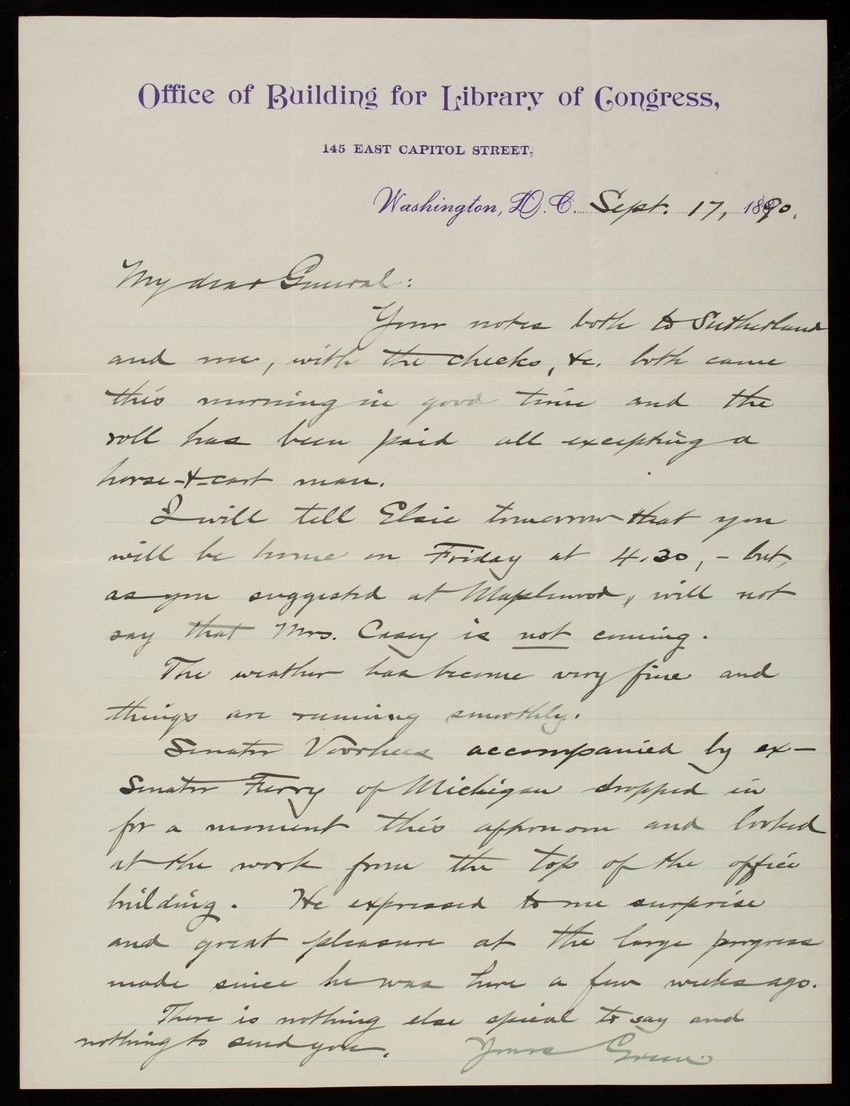 Office of Building for Library of Congress,
145 EAST CAPITOL STREET,
Washington, D.C. Sept. 17, 1890.
My dear General:
Your notes both to Sutherland
and me, with the checks, &c. both came
this morning in good time and the
roll has been paid all excepting a
horse-&-cart man.
I will tell Elsie tomorrow that you
will be home on Friday at 4.30, - but,
as you suggested at Maplewood, will not
say that Mrs. Casey is not coming.
The weather has become very fine and
things are running smoothly.
Senator Voorhees accompanied by ex-
Senator Ferry of Michigan dropped in
for a moment this afternoon and looked
at the work from the top of the office
building. He expressed to me surprise
and great pleasure at the large progress
made since he was here a few weeks ago.
There is nothing else special to say and
nothing to send you. Yours Green